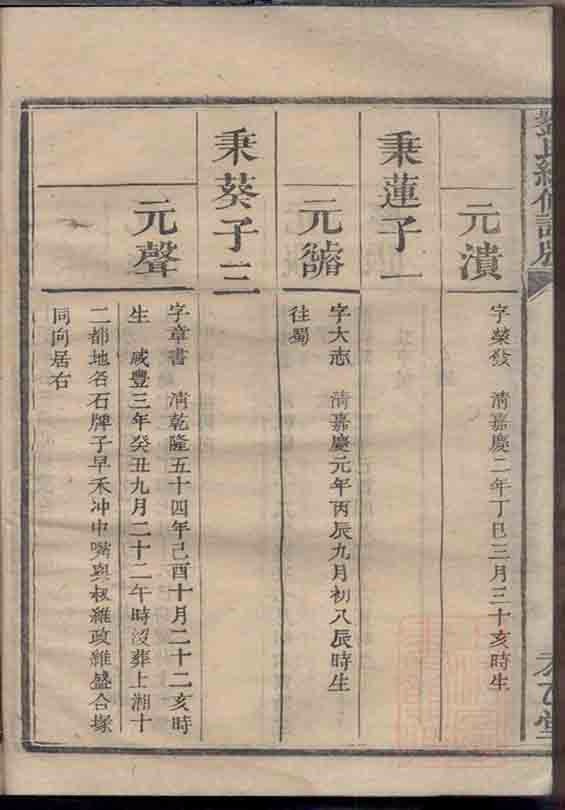 劉氏續修族譜
元瀆
字榮發　清嘉慶二年丁巳三月三十亥時生
秉蓮子一
元
字大志　清嘉慶元年丙辰九月初八辰時生
往蜀
秉葵子三
元聲
字章書　清乾隆五十四年己酉十月二十二亥時
生　咸豐三年癸丑九月二十二午時沒葬上湘十
二都地名石牌子早禾冲中嘴與叔維政維盛合塚
同向居右